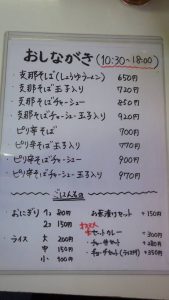 おしながき (10:30~18:00)
・支那そば(しょうゆラーメン) 650円
・支那そば玉子入り 720円
・支那そばチャーシュー 850円
・支那そばチャーシュー玉子入り 920円
・ピリ辛そば 700円
・ピリ辛そば玉子入り 770円
・ピリ辛そばチャーシュー 900円
・ピリ辛そばチャーシュー玉子入り 970円
ごはんもの
・おにぎり 1コ 80円
2コ 150円
・ライス 大 200円
中 150円
小 100円
お茶漬けセット +150円
セットカレー +300円